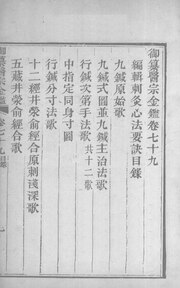 御纂醫宗金鑑卷七十九
編輯刺灸心法要訣目錄
九鍼原始歌
九鍼式圖並九鍼主治法歌
行鍼次第手法歌共十二歌
中指定同身寸圖
行鍼分寸法歌
十二經井滎俞經合原刺淺深歌
五藏井滎俞經合歌